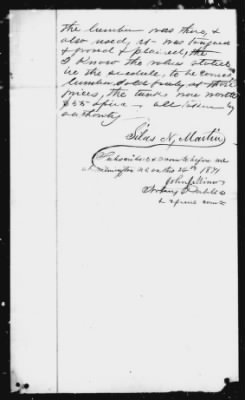 the lumber was there, &
also used, it was tongued
& grooved & planed, the
I know the rates stated
in the schedule, to be correct
lumber sold freely at those
prices, the tank was worth
$55 apiece all taken by
authority
Silas N. Martin
Subscribed & sworn to before me
at Wilmington N.C. on this 26th 1871
John J.
Notary Public
&